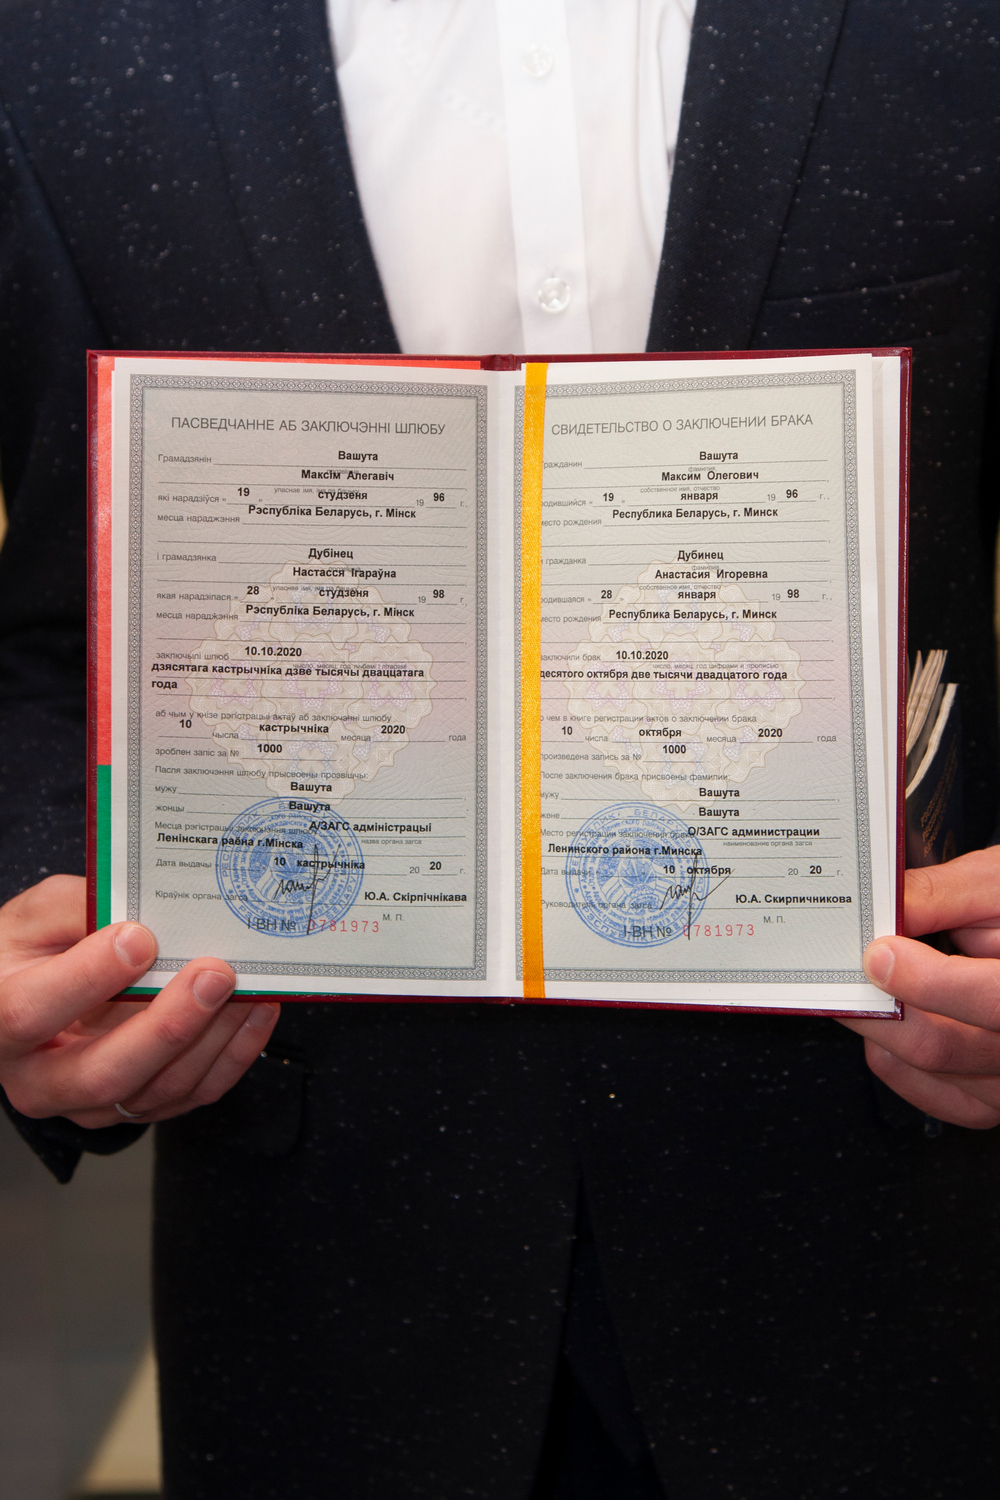 ПАСВЕДЧАННЕ АБ ЗАКЛЮЧЭННІ ШЛЮБУ
Грамадзянін Вашута
Максім Алегавіч
які нарадзіўся « 19 » студзеня 19 96 г.,
месца нараджэння Рэспубліка Беларусь, г. Мінск
і грамадзянка Дубінец
Настасся Ігараўна
якая нарадзілася « 28 » студзеня 19 98 г.,
месца нараджэння Рэспубліка Беларусь, г. Мінск
заключылі шлюб 10.10.2020
число, месяц, год лічбамі і літарамі
дзясятага кастрычніка дзве тысячы дваццатага
года
аб чым у кнізе рэгістрацыі актаў аб заключэнні шлюбу
10 чысла кастрычніка месяца 2020 года
зроблен запіс за № 1000
Пасля заключэння шлюбу прысвоены прозвішчы:
мужу Вашута
жонцы Вашута
Месца рэгістрацыі заключэння шлюбу А/ЗАГС адміністрацыі
назва органа загса
Ленінскага раёна г.Мінска
Дата выдачы 10 кастрычніка 20 20 г.
Кіраўнік органа загса Ю.А. Скірпічнікава
М. П.
І-ВН № 0781973
СВИДЕТЕЛЬСТВО О ЗАКЛЮЧЕНИИ БРАКА
гражданин Вашута
фамилия
Максим Олегович
собственное имя, отчество
родившийся « 19 » января 19 96 г.,
место рождения Республика Беларусь, г. Минск
и гражданка Дубинец
фамилия
Анастасия Игоревна
собственное имя, отчество
родившаяся « 28 » января 19 98 г.,
место рождения Республика Беларусь, г. Минск
заключили брак 10.10.2020
число, месяц, год цифрами и прописью
десятого октября две тысячи двадцатого года
о чем в книге регистрации актов о заключении брака
10 числа октября месяца 2020 года
произведена запись за № 1000
После заключения брака присвоены фамилии:
мужу Вашута
жене Вашута
Место регистрации заключения брака О/ЗАГС администрации
наименование органа загса
Ленинского района г.Минска
Дата выдачи 10 октября 20 20 г.
Руководитель органа загса Ю.А. Скирпичникова
М. П.
І-ВН № 0781973